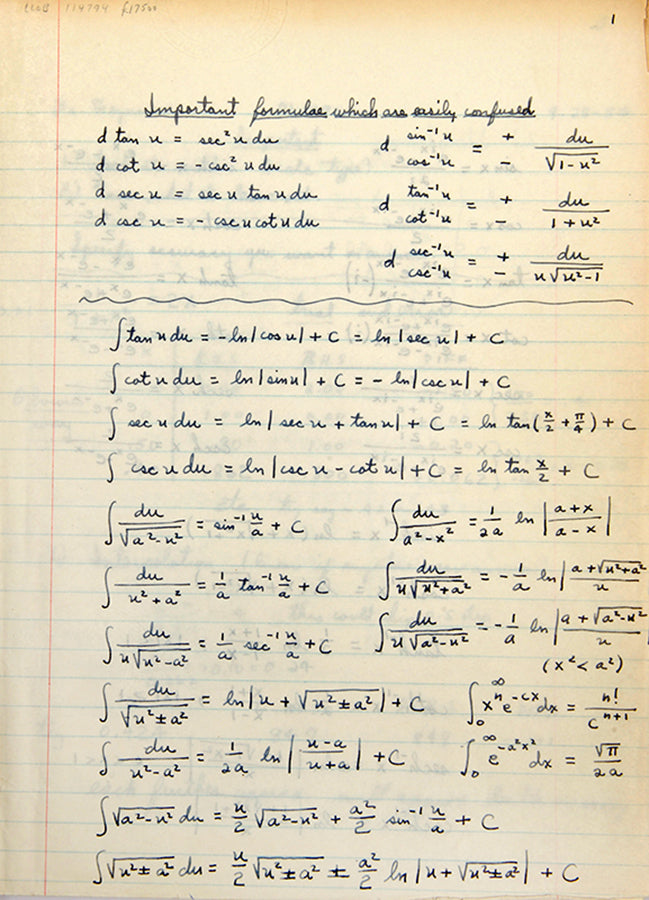 LLOB 114794 £17500
1
Important formulae which are easily confused
d tan u = sec² u du
d cot u = -csc² u du
d sec u = sec u tan u du
d csc u = - csc u cot u du
d sin⁻¹u / cos⁻¹u = + / - du/√(1-u²)
d tan⁻¹u / cot⁻¹u = + / - du/(1+u²)
d sec⁻¹u / csc⁻¹u = + / - du/(u√(u²-1))
∫ tan u du = -ln|cos u| + C = ln|sec u| + C
∫ cot u du = ln|sin u| + C = - ln|csc u| + C
∫ sec u du = ln|sec u + tan u| + C = ln tan(x/2 + π/4) + C
∫ csc u du = ln|csc u - cot u| + C = ln tan x/2 + C
∫ du/√(a²-u²) = sin⁻¹ u/a + C ∫ du/(a²-x²) = 1/2a ln |(a+x)/(a-x)|
∫ du/(u²+a²) = 1/a tan⁻¹ u/a + C ∫ du/(u√(u²+a²)) = - 1/a ln |(a+√(u²+a²))/u
∫ du/(u√(u²-a²)) = 1/a sec⁻¹ u/a + C ∫ du/(u√(a²-u²)) = - 1/a ln |(a+√(a²-u²))/u
(x² < a²)
∫ du/√(u²±a²) = ln|u + √(u²±a²)| + C ∫₀^∞ xⁿe^(-cx) dx = n!/cⁿ⁺¹
∫ du/(u²-a²) = 1/2a ln |(u-a)/(u+a)| + C ∫₀^∞ e^(-a²x²) dx = √π/2a
∫ √(a²-u²) du = u/2 √(a²-u²) + a²/2 sin⁻¹ u/a + C
∫ √(u²±a²) du = u/2 √(u²±a²) ± a²/2 ln|u + √(u²±a²)| + C